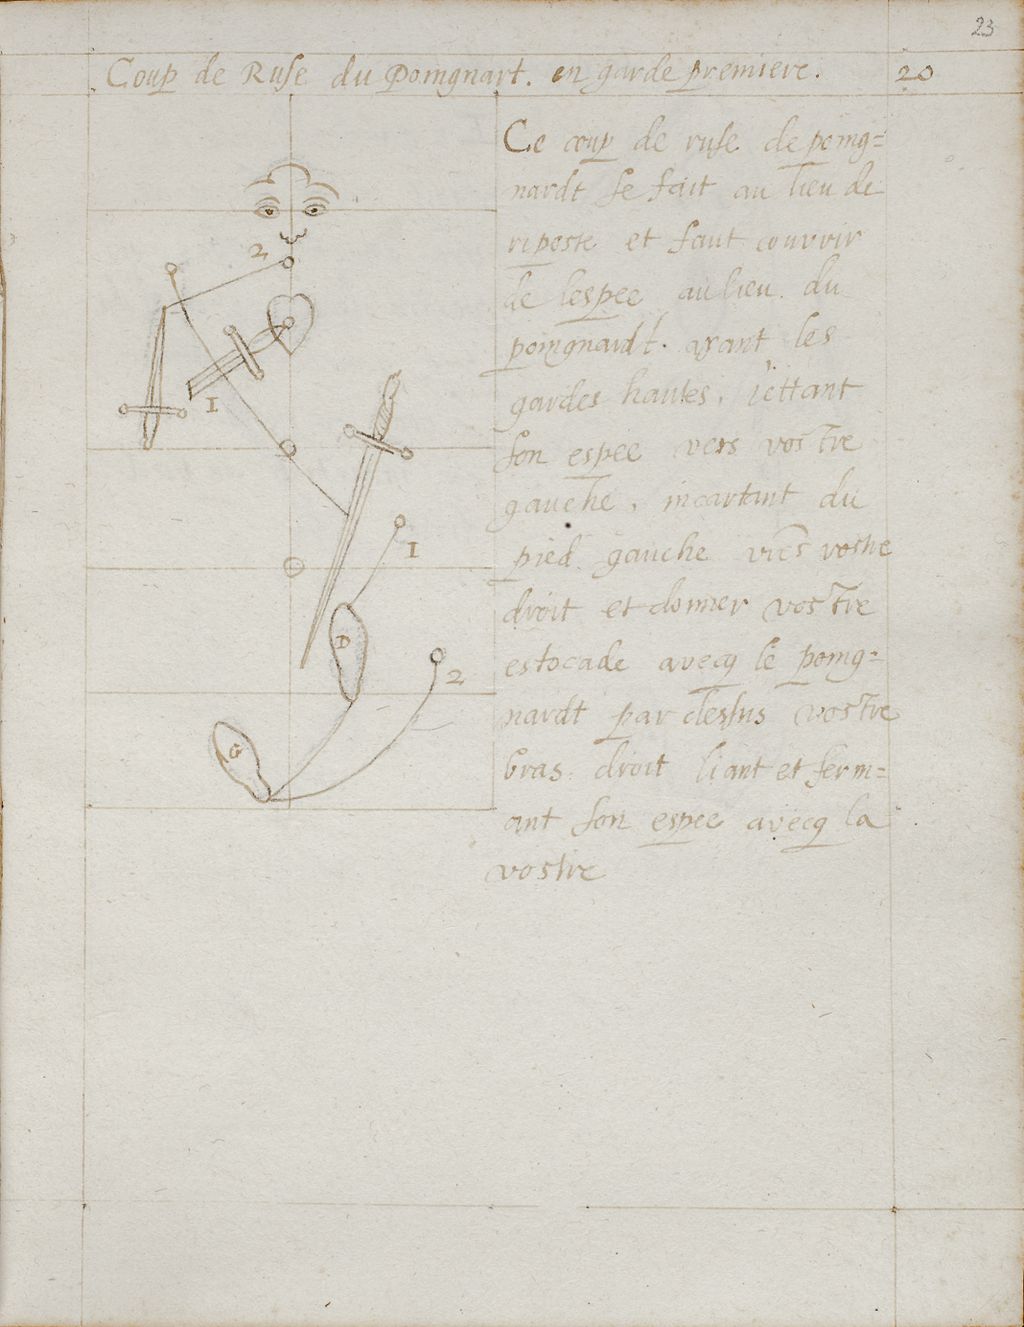 23
Coup de Ruse du Poingnart. en garde premiere. 20
Ce coup de ruse de poing=
nardt se fait au lieu de
riposte et faut couvrir
de lespee au lieu du
poingnardt. ayant les
gardes hautes, jettant
son espee vers vostre
gauche, incartant du
pied gauche vers vostre
droit et donner vostre
estocade avecq le poing=
nardt par dessus vostre
bras droit liant et ferm=
ant son espee avecq la
vostre
2
1
1
D
2
G